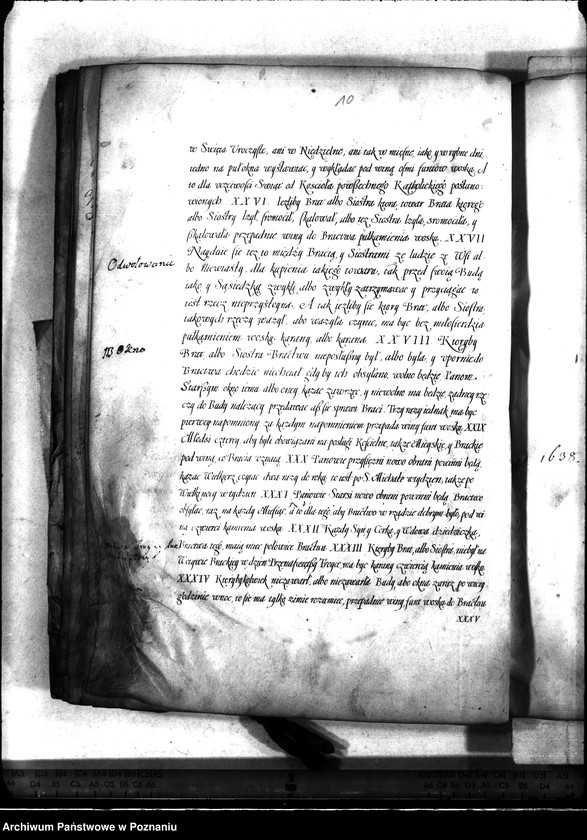 10
w Święta Uroczyste, ani w Niedzielne, ani tak w mięsne, iako y w rybne dni,
iedno na puł okna wystawiac, y wykładac pod winą ośmi funtow wosku. A
to dla uczciwości Swiąt od Kościoła powszechnego Katholickiego postano-
wionych. XXVI. Iezliby Brat albo Siostra ktora, towar Brata ktorego
albo Siostry lzył, sromocił, szkalował, albo tez Siostra lzyła, sromociła, y
szkalowała, przepadnie winy do Bractwa pułkamienia wosku. XXVII
Nayduie sie tez to między Bracią, y Siostrami ze ludzie ze Wsi al-
bo niewiasty, dla kupienia iakiego towaru, tak przed swoią Budą
iako y Sąsiedzką zwykli, albo zwykły zatrzymawac y przyciągac co
iest rzecz nieprzystoyna. A tak iezliby sie ktory Brat, albo Siostra
takowych rzeczy wazył, albo wazyła czynic, ma byc bez miłosierdzia
pułkamieniem wosku karany, albo karana. XXVIII Ktoryby
Brat albo Siostra Bractwu nieposłuszny był, albo była, y upornie do
Bractwa chodzic niechciał gdy by ich obsyłano, wolno będzie Panom
Starszym okno iemu albo oney kazac zawrzec, y niewolno mu będzie zadney rze-
czy do Budy nalezący przedawac asz sie sprawi Braci. Trzy razy iednak ma byc
pierwey napomniony, za kazdym napomnieniem przepada winy funt wosku. XXIX
Młodsi czterey, aby byli obowiązani na posługi Kościelne, takze Mieyskie, y Brackie
pod winą, co Bracia uznaią. XXX Panowie przysięzni nowo obrani powinni będą,
kazac Wielkierz czytac dwa razy do roku, to iest po S. Michale w tydzien, takze po
Wielkinocy w tydzien. XXXI Panowie Starsi nowo obrani powinni będą Bractwo
obsyłac, raz na kazdy Miesiąc, a to dla tego, aby Bractwo w rządzie dobrym było, pod wi-
ną czwierci kamienia wosku. XXXII Kazdy Syn y Corka, y Wdowa dziedziczka,
Bractwa tego, maią miec połowice Bractwa. XXXIII Ktoryby Brat, albo Siostra, niebył na
Wigiliy Brackiey w dzien Przenaświętszey Troyce, ma byc karany czwiercią kamienia wosku.
XXXIV Ktorybykolwiek niezawarł, albo niezawarła Budy, abo okna zaraz po wtory
godzinie wnoc, co sie ma tylko zimie rozumiec, przepadnie winy funt wosku do Bractwa
XXXV
Odwołowanie
1638.
Archiwum Państwowe w Poznaniu